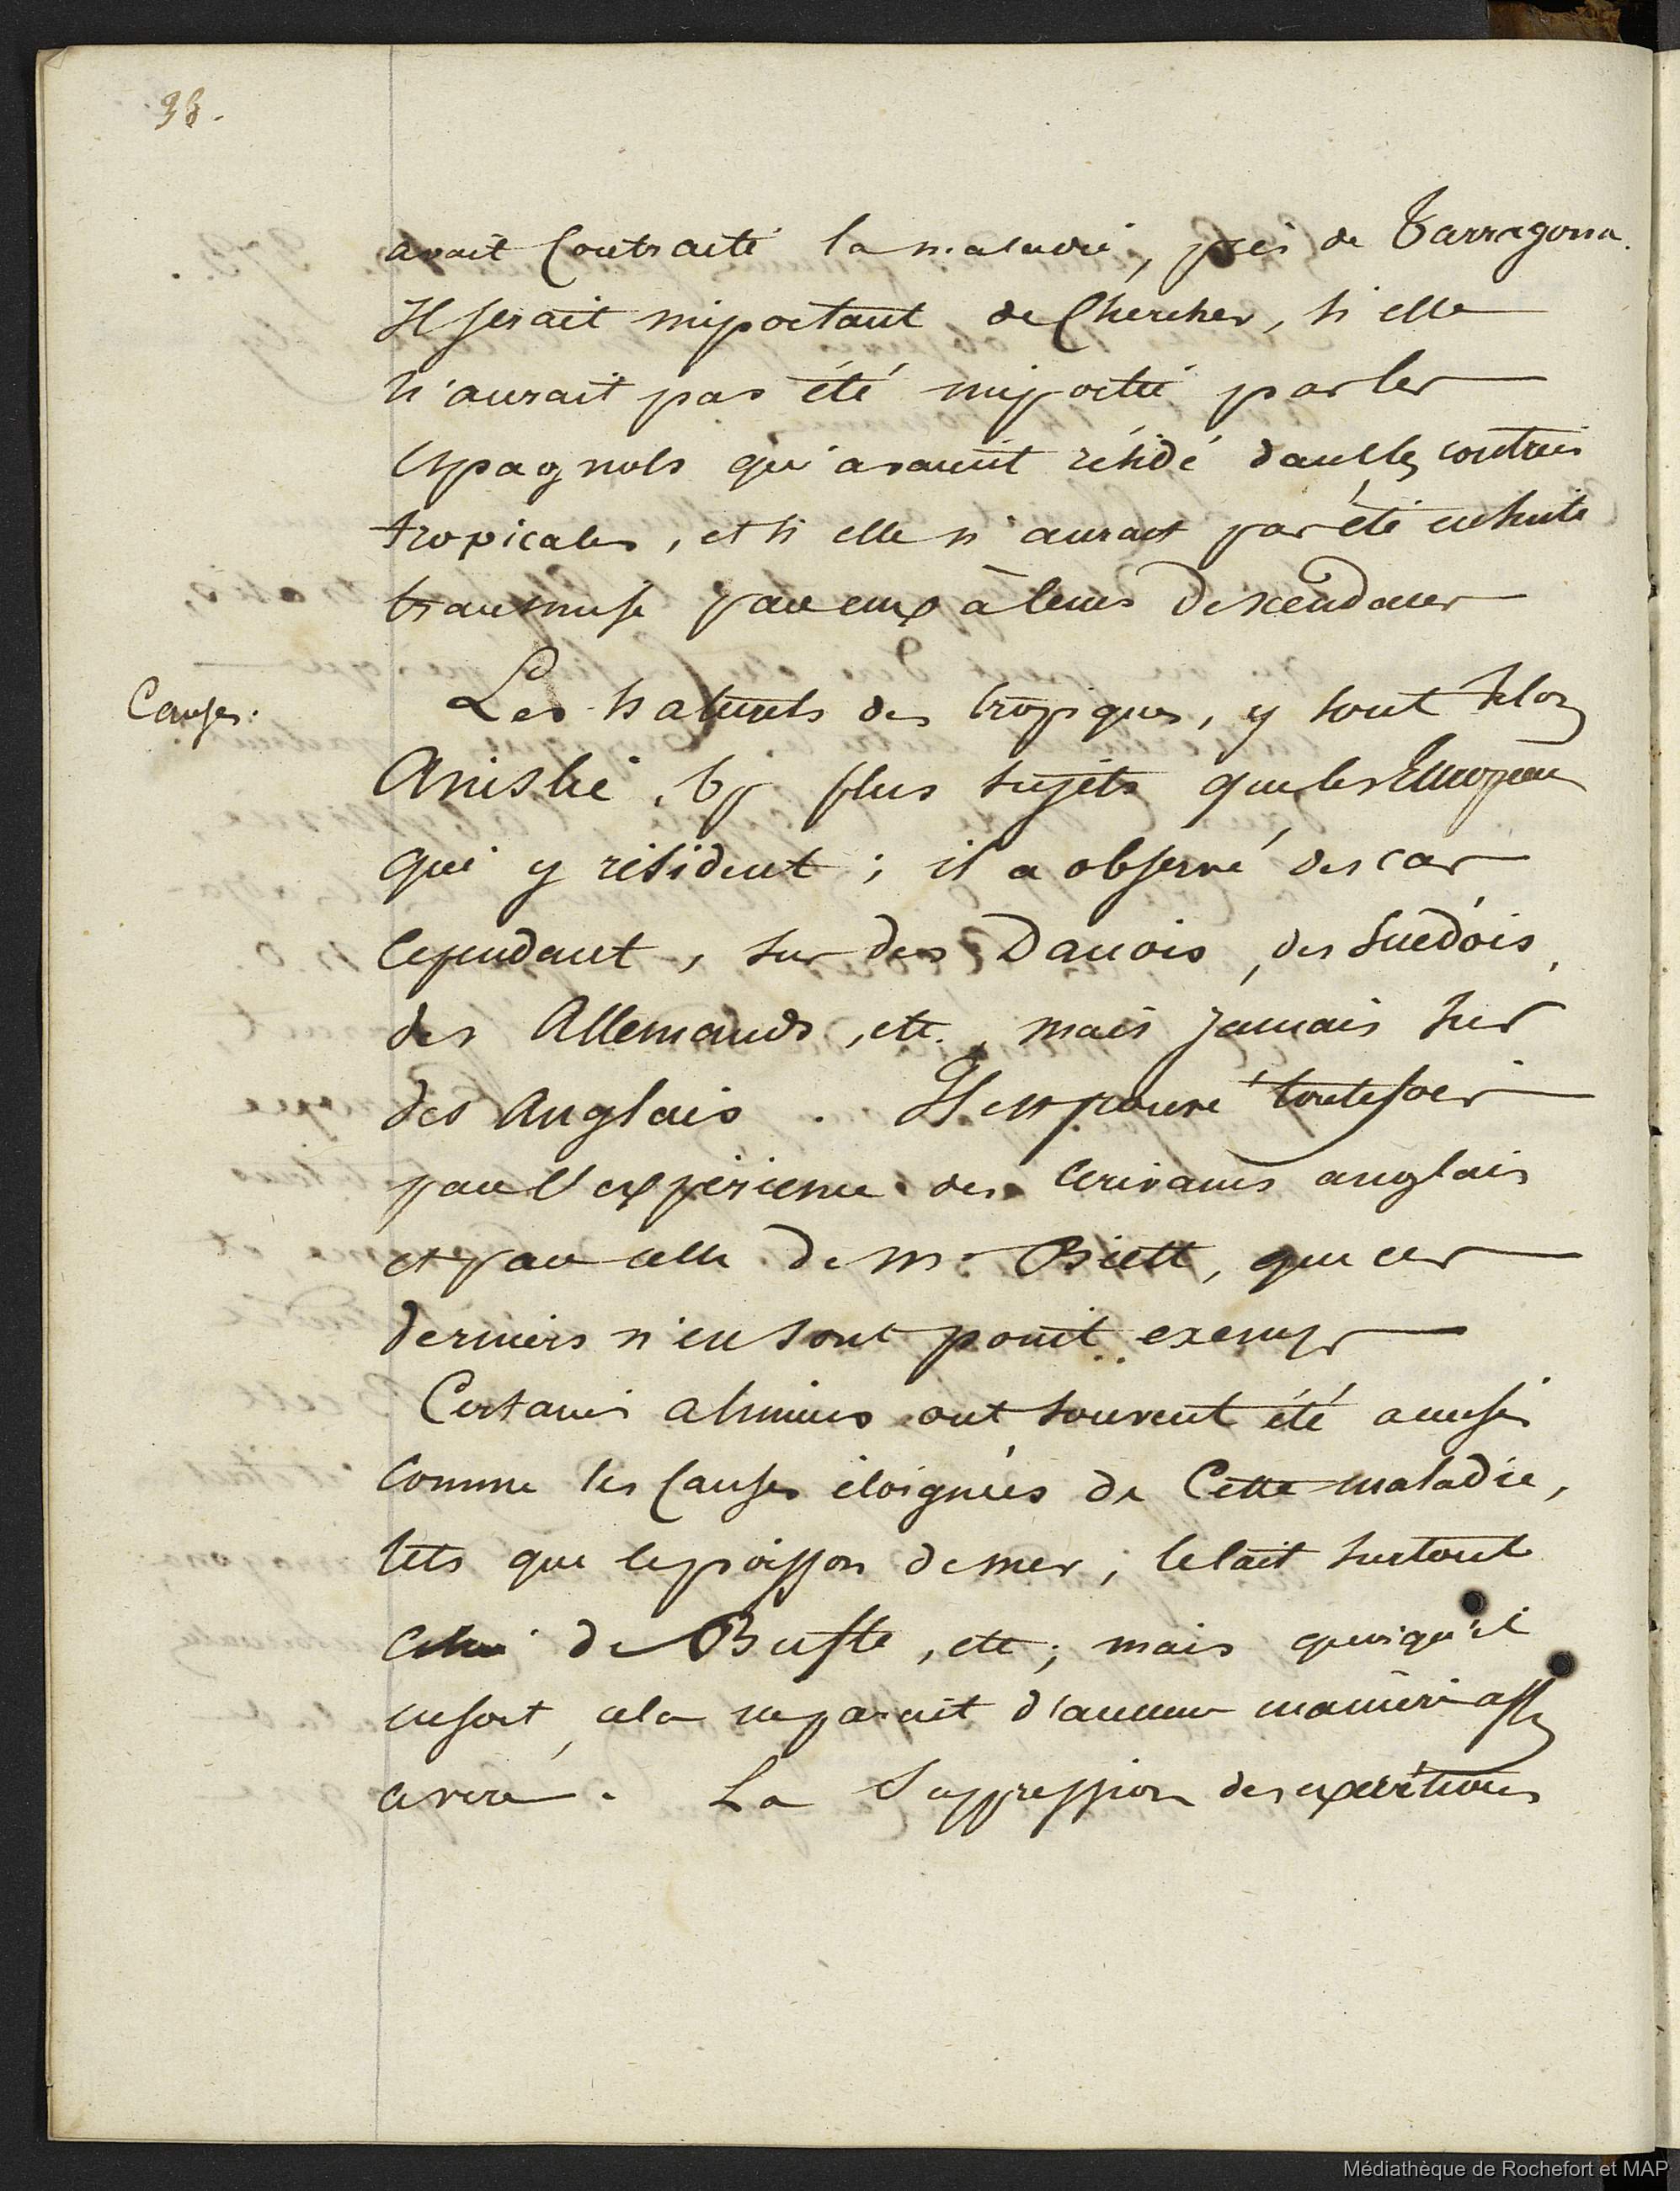 38.
avait Contracté la maladie, près de Tarragona.
Il serait important de Chercher, si elle
n'aurait pas été importée par les
espagnols qui avaient résidé dans les contrées
tropicales, et si elle n'aurait pas été ensuite
transmise par eux à leurs Descendans
Causes.
Les naturels des tropiques, y sont selon
Ainslie, bp plus sujets que les Européens
qui y résident ; il a observé des cas
Cependant, sur des Danois, des Suédois,
des Allemands, etc., mais jamais sur
des Anglais. Il est prouvé toutefois
par l'expérience des écrivains anglais
et par celle de Mr Biett, que ces
derniers n'en sont point exempts
Certains alimens ont souvent été accusés
Comme les Causes éloignées de Cette maladie,
tels que le poisson de mer, le lait surtout
celui de Bufle, etc; mais quoiqu'il
en soit, cela ne parait d'aucune manière assez
avéré. La Suppression des
Médiathèque de Rochefort et MAP